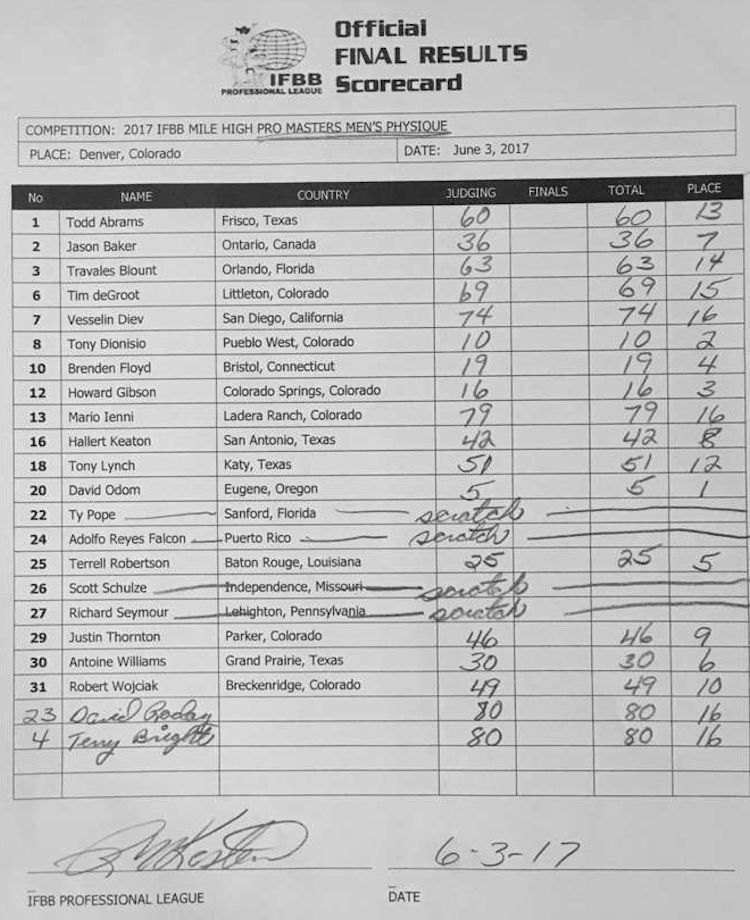 Official
FINAL RESULTS
Scorecard
IFBB
PROFESSIONAL LEAGUE
COMPETITION: 2017 IFBB MILE HIGH PRO MASTERS MEN'S PHYSIQUE
PLACE: Denver, Colorado DATE: June 3, 2017
No NAME COUNTRY JUDGING FINALS TOTAL PLACE
1 Todd Abrams Frisco, Texas 60 60 13
2 Jason Baker Ontario, Canada 36 36 7
3 Travales Blount Orlando, Florida 63 63 14
6 Tim deGroot Littleton, Colorado 69 69 15
7 Vesselin Diev San Diego, California 74 74 16
8 Tony Dionisio Pueblo West, Colorado 10 10 2
10 Brenden Floyd Bristol, Connecticut 19 19 4
12 Howard Gibson Colorado Springs, Colorado 16 16 3
13 Mario Ienni Ladera Ranch, Colorado 79 79 16
16 Hallert Keaton San Antonio, Texas 42 42 8
18 Tony Lynch Katy, Texas 51 51 12
20 David Odom Eugene, Oregon 5 5 1
22 Ty Pope Sanford, Florida scratch
24 Adolfo Reyes Falcon Puerto Rico scratch
25 Terrell Robertson Baton Rouge, Louisiana 25 25 5
26 Scott Schulze Independence, Missouri scratch
27 Richard Seymour Lehighton, Pennsylvania scratch
29 Justin Thornton Parker, Colorado 46 46 9
30 Antoine Williams Grand Prairie, Texas 30 30 6
31 Robert Wojciak Breckenridge, Colorado 49 49 10
23 David 80 80 16
4 Terry Bright 80 80 16
6-3-17
IFBB PROFESSIONAL LEAGUE DATE